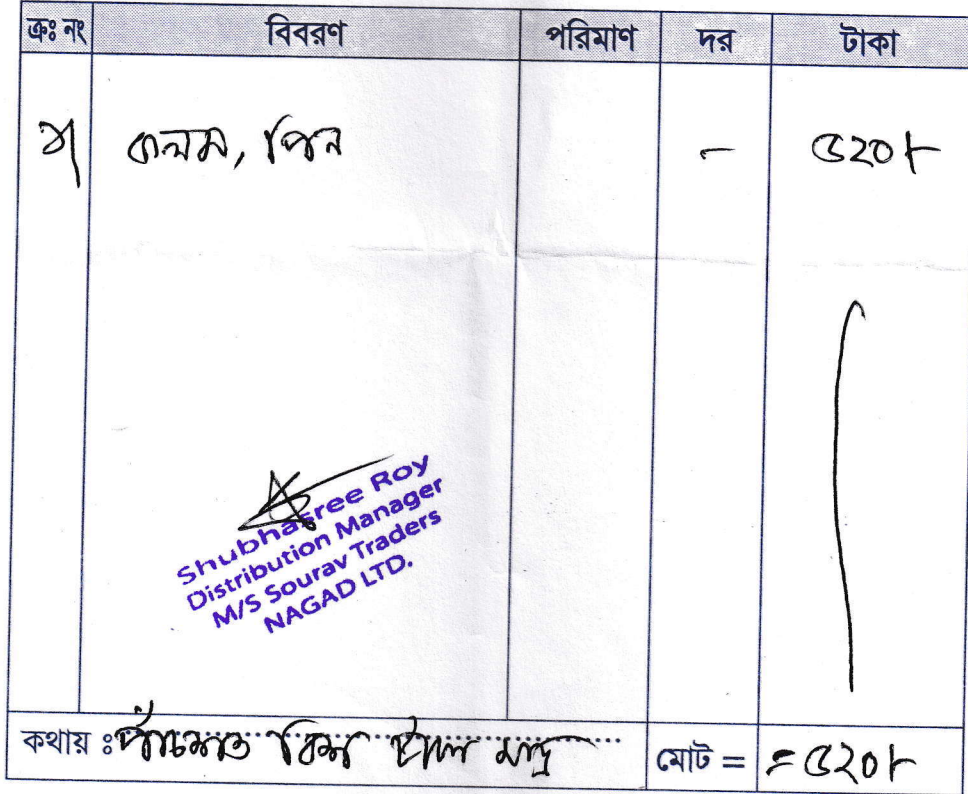 ক্রঃ নং বিবরণ পরিমাণ দর টাকা
১| কলম, পিন - ৫২০/-
Shubhasree Roy
Distribution Manager
M/S Sourav Traders
NAGAD LTD.
কথায় ঃ পাঁচশত বিশ টাকা মাত্র মোট = = ৫২০/-